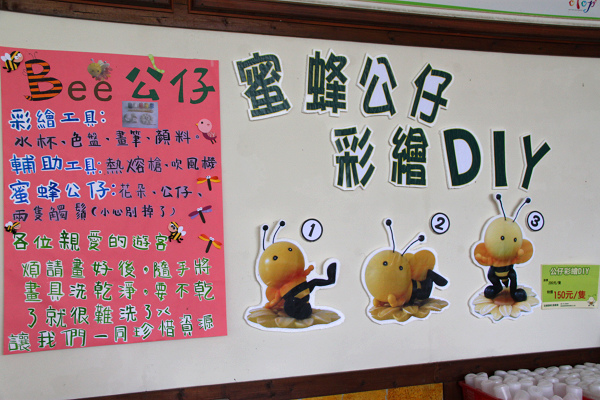 Bee公仔
彩繪工具:
水杯、色盤、畫筆、顏料。
輔助工具:熱熔槍、吹風機
蜜蜂公仔:花朵、公仔、
兩隻觸鬚(小心別掉了)
各位親愛的遊客
煩請畫好後,隨手將
畫具洗乾淨,要不乾
了就很難洗了
讓我們一同珍惜資源
蜜蜂公仔
彩繪DIY
1
2
3
公仔彩繪DIY
150元/隻